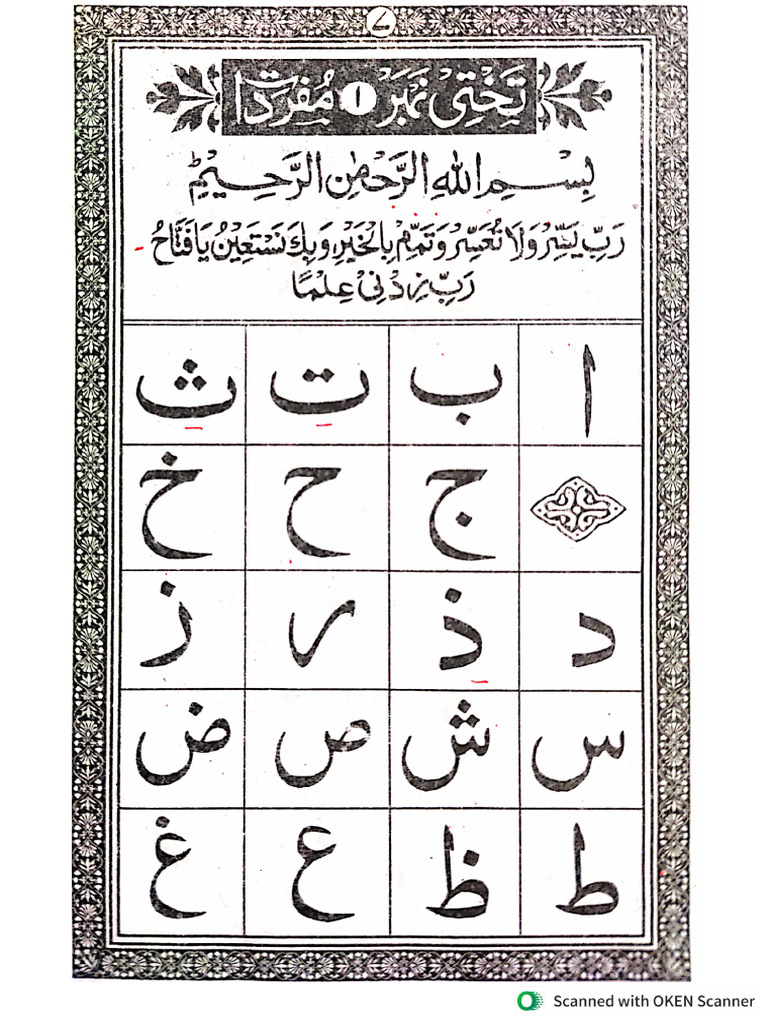 ۷
تَخْتِیْ نَمْبَرْ ۱ مُفْرَدَات
بِسْمِ اللهِ الرَّحْمٰنِ الرَّحِيْمِ
رَبِّ يَسِّرْ وَلَا تُعَسِّرْ وَتَمِّمْ بِالْخَيْرِ وَبِكَ نَسْتَعِيْنُ يَا فَتَّاحُ
رَبِّ زِدْنِيْ عِلْمًا
ا ب ت ث
ج ح خ
د ذ ر ز
س ش ص ض
ط ظ ع غ
Scanned with OKEN Scanner